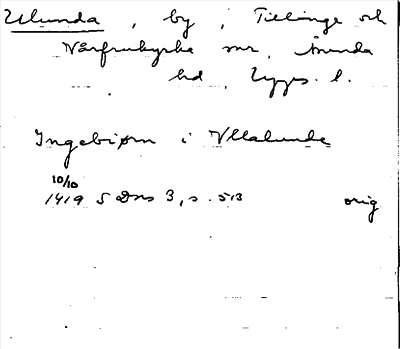 Ulunda, by, Tillinge och
Vårfrukyrka snr, Åsunda
hd, Upps. l.
Ingebiørn i Vllalunde
10/10
1419 SDns 3, s. 513 orig